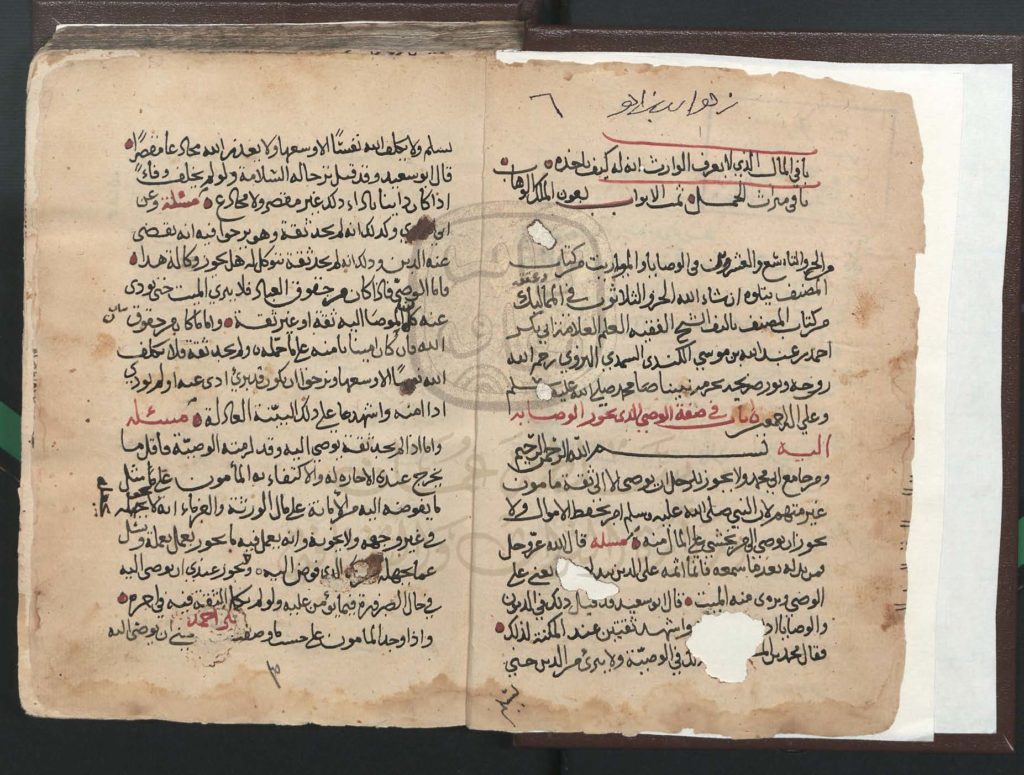 ٦
باب في المال الذي لا يعرف الوارث انه له كيف ياخذه
باب في ميراث الحمل تمت الابواب بعون الملك الوهاب
الجزء التاسع والعشرون في الوصايا والمواريث من كتاب
المصنف يتلوه ان شاء الله الجزو الثلاثون في المماليك وعتقهم
من كتاب المصنف تاليف الشيخ الفقيه العلم العلامة ابي بكر
احمد بن عبد الله بن موسى الكندي السمدي النزوي رحم الله
روحه ونور ضريحه بحرمة نبينا محمد صلى الله عليه وسلم
وعلى اله اجمعين باب في صفة الوصي الذي يجوز الوصاية
اليه بسم الله الرحمن الرحيم
ومن جامع ابي محمد ولا يجوز للرجل ان يوصي الا الى ثقة مامون
غير متهم لان النبي صلى الله عليه وسلم امر بحفظ الاموال ولا
يجوز ان يوصي الى من يخشى على المال منه مسئلة قال الله عز وجل
فمن بدله بعد ما سمعه فانما اثمه على الذين يبدلونه يعني على
الوصي ويبرى منه الميت قال ابو سعيد وقد قيل ذلك في الديون
والوصايا اذا واشهد ثقتين عند المكنة لذلك
فقال محمد بن ذلك في الوصية ولا يبرى من الدين حتى
يسلم ولا يكلف الله نفسا الا وسعها ولا يعذر الله مخادعا مقصرا
قال ابو سعيد وقد قيل ترجا له السلامة ولو لم يخلف وفاء
اذا كان داينا باداء ذلك غير مقصر ولا مخادع مسئلة وعن
ابي وكذلك انه لم يجد ثقة وهو يرجوا فيه انه يقضي
عنه الدين وذلك انه لم يجد ثقة يتوكل له هل يجوز وكالة هذا
واما الوصي فاذا كان من حقوق العباد فلا يبرى الميت حتى يودي
عنه كان الموصا اليه ثقة او غير ثقة واما ما كان من حقوق
الله فان كان امينا يامنه على ما حمله ولم يجد ثقة فلا يكلف
الله نفسا الا وسعها ويرجوا ان يكون قد برى ادى عنه او لم يودي
اذا امنه واشهدها على ذلك البينة العادلة مسئلة
واما اذا لم يجد ثقة يوصي اليه وقد لزمته الوصية فاقل ما
يخرج عندي الاجازة له والاكتفاء به المأمون على مثل
ما يفوضه اليه من الامانة على مال الورثة والغرماء انه لا يجعله
في غير وجهه ولا يخونه وانه يعمل فيه بما يجوز يعمل بعلمه ويسئل
عما يجهله الذي فوض اليه ويجوز عندي ان يوصي اليه
في حال الضرورة فيما يؤمن عليه ولو لم يكن الثقة فيه في
واذا وجد المامون على حسب ما وصفت ان يوصي اليه